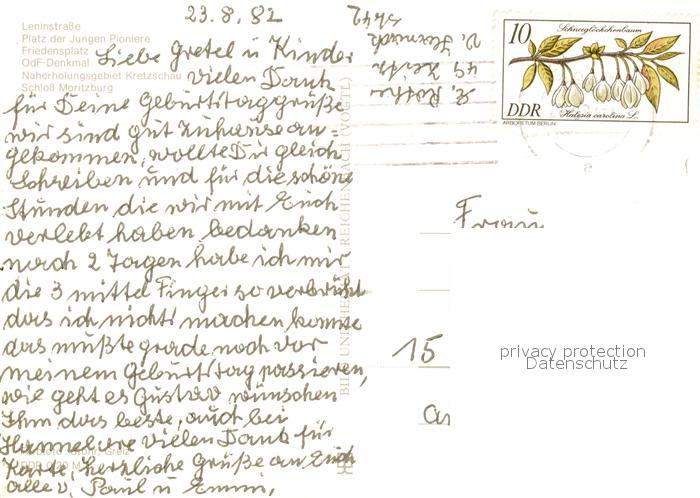 Leninstraße
Platz der Jungen Pioniere
Friedensplatz
OdF-Denkmal
Naherholungsgebiet Kretzschau
Schloß Moritzburg
23.8.82
Liebe Gretel u Kinder
vielen Dank
für Deine Geburtstaggrüße
wir sind gut zuhause an=
gekommen, wollte Dir gleich
schreiben und für die schöne
Stunden die wir mit Euch
verlebt haben bedanken
nach 2 Tagen habe ich mir
die 3 mittel Finger so verbrüht
das ich nichts machen konnte
das mußte grade noch vor
meinem Geburtstag passieren,
wie geht es Gustav wünschen
Ihm das beste, auch bei
vielen Dank für
Karte, herzliche Grüße an Euch
alle v. Paul u Emmi,
49 Zeitz
BILD UND HEIMAT REICHENBACH (VOGTL)
10
Schneeglöckchenbaum
DDR
Halesia carolina L.
ARBORETUM BERLIN
Frau
15
privacy protection
Datenschutz